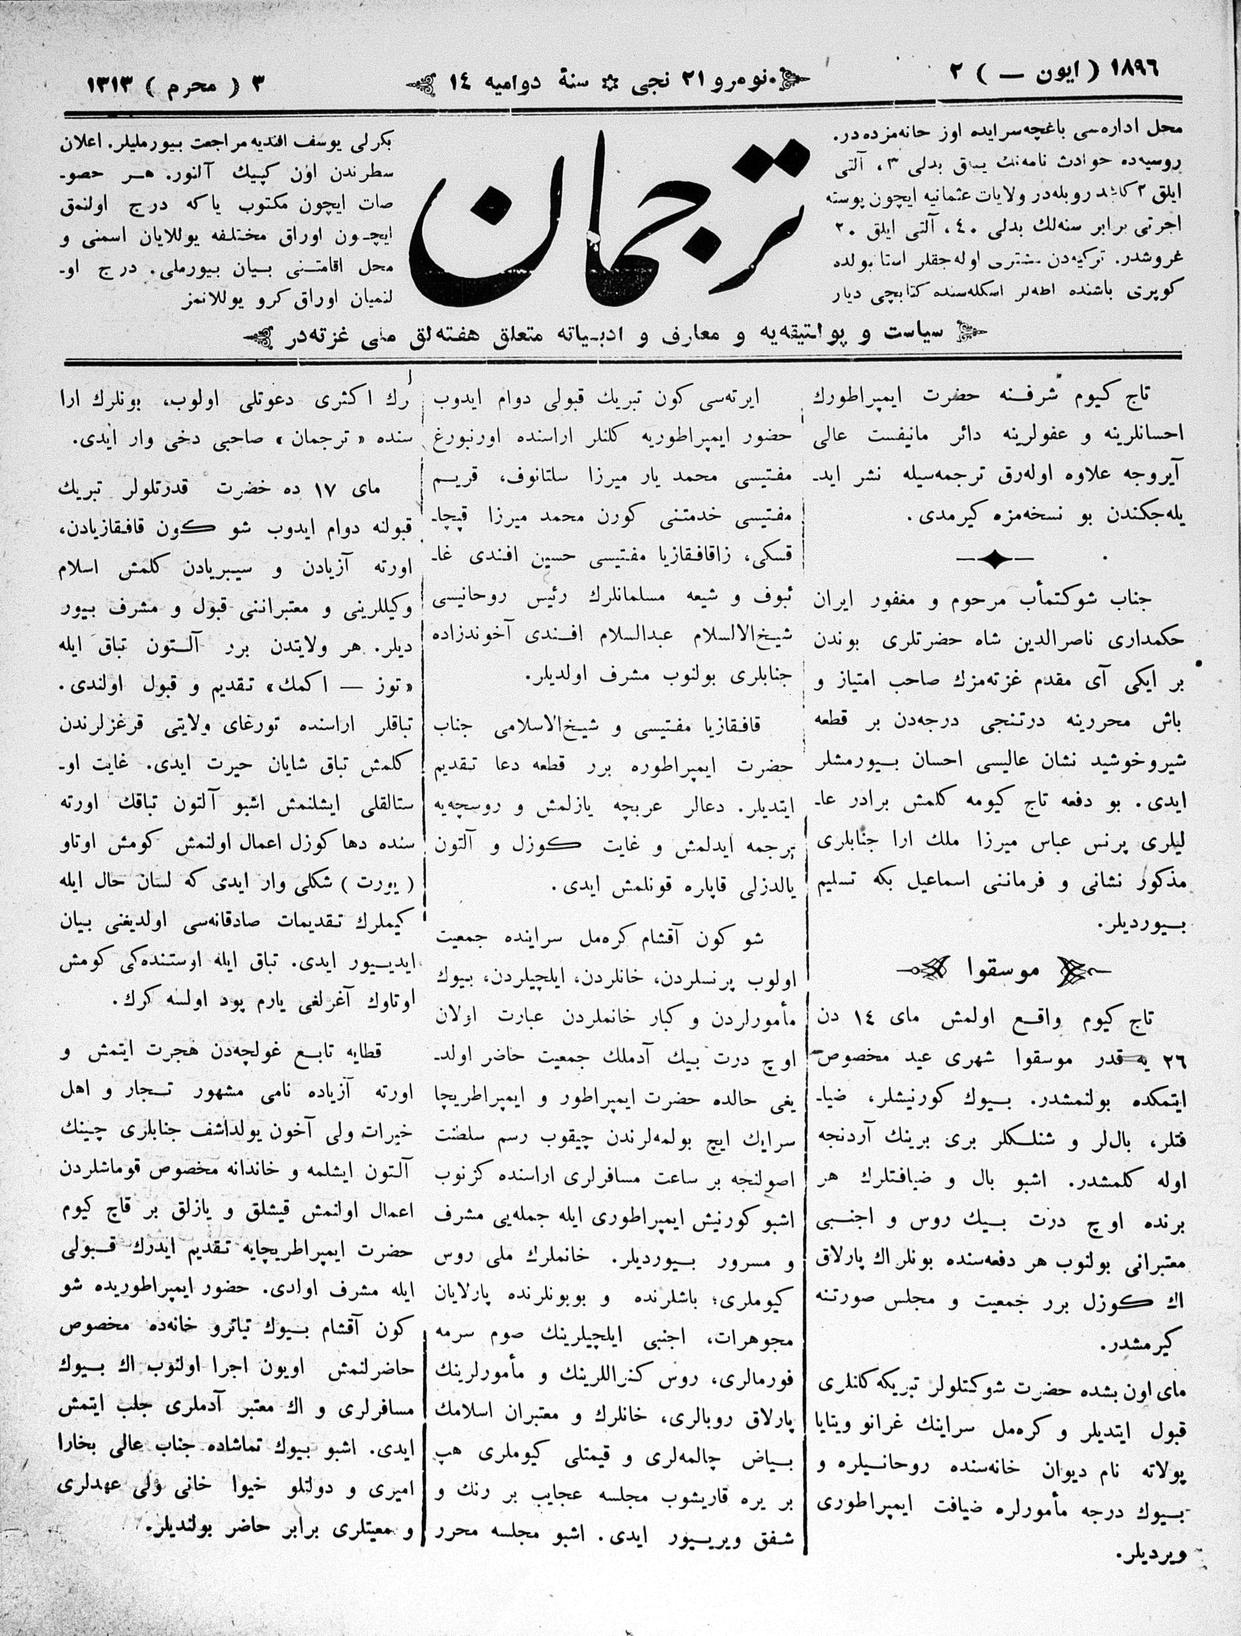 ١٨٩٦ ( ايون — ) ٢
نومرو ٢١ نجی ✻ سنهٔ دواميه ١٤
٣ ( محرم ) ١٣١٣
محل اداره‌سی باغچه‌سرايده اوز خانه‌مزده‌در.
روسيه‌ده حوادث نامه‌نك ييلق بدلی ٣، آلتی
ايلق ٢ روبله‌در ولايات عثمانيه ايچون پوسته
اجرتی برابر سنه‌لك بدلی ٤٠، آلتی ايلق ٢٠
غروشدر. تركيه‌دن مشتری اوله‌جقلر استانبولده
كوپری باشنده اطه‌لر اسكله‌سنده كتابچی ديار
ترجمان
بكرلی يوسف افنديه مراجعت بيورمليلر. اعلان
سطرندن اون كپيك آلنور. هر حصو-
صات ايچون مكتوب ياكه درج اولنمق
ايچون اوراق مختلفه يوللايان اسمنی و
محل اقامتنی بيان بيورملی. درج او-
لنميان اوراق كرو يوللانمز
سياست و پولتيقه‌يه و معارف و ادبياته متعلق هفته‌لق ملی غزته‌در
تاج كيوم شرفنه حضرت ايمپراطورك
احسانلرينه و عفولرينه دائر مانيفست عالی
آيروجه علاوه اوله‌رق ترجمه‌سيله نشر ايد-
يله‌جكندن بو نسخه‌مزه كيرمدی.
جناب شوكتمأب مرحوم و مغفور ايران
حكمداری ناصرالدين شاه حضرتلری بوندن
بر ايكی آی مقدم غزته‌مزك صاحب امتياز و
باش محررينه درتنجی درجه‌دن بر قطعه
شيروخوشيد نشان عاليسی احسان بيورمشلر
ايدی. بو دفعه تاج كيومه كلمش برادر عا-
ليلری پرنس عباس ميرزا ملك ارا جنابلری
مذكور نشانی و فرماننی اسماعيل بكه تسليم
بيورديلر.
موسقوا
تاج كيوم واقع اولمش مای ١٤ دن
٢٦ يه قدر موسقوا شهری عيد مخصوص
ايتمكده بولنمشدر. بيوك كورنيشلر، ضيا-
فتلر، بال‌لر و شنلكلر بری برينك آردنجه
اوله كلمشدر. اشبو بال و ضيافتلرك هر
برنده اوچ درت بيك روس و اجنبی
معتبرانی بولنوب هر دفعه‌سنده بونلر اك پارلاق
اك كوزل برر جمعيت و مجلس صورتنه
كيرمشدر.
مای اون بشده حضرت شوكتلولر تبريكه كلنلری
قبول ايتديلر و كره‌مل سراينك غرانو ويتايا
پولاته نام ديوان خانه‌سنده روحانيلره و
بيوك درجه مأمورلره ضيافت ايمپراطوری
ويرديلر.
ايرته‌سی كون تبريك قبولی دوام ايدوب
حضور ايمپراطوريه كلنلر اراسنده اورنبورغ
مفتيسی محمد يار ميرزا سلتانوف، قريم
مفتيسی خدمتنی كورن محمد ميرزا قپچا-
قسكی، زاقافقازيا مفتيسی حسين افندی غا-
ئبوف و شيعه مسلمانلرك رئيس روحانيسی
شيخ‌الالسلام عبدالسلام افندی آخوندزاده
جنابلری بولنوب مشرف اولديلر.
قافقازيا مفتيسی و شيخ‌الاسلامی جناب
حضرت ايمپراطوره برر قطعه دعا تقديم
ايتديلر. دعالر عربچه يازلمش و روسچه‌يه
ترجمه ايدلمش و غايت كوزل و آلتون
يالدزلی قاپلره قونلمش ايدی.
شو كون آقشام كره‌مل سراينده جمعيت
اولوب پرنسلردن، خانلردن، ايلچيلردن، بيوك
مأمورلردن و كبار خانملردن عبارت اولان
اوچ درت بيك آدملك جمعيت حاضر اولد-
يغی حالده حضرت ايمپراطور و ايمپراطريچا
سرايك ايچ بولمه‌لرندن چيقوب رسم سلطنت
اصولنجه بر ساعت مسافرلری اراسنده كزنوب
اشبو كورنيش ايمپراطوری ايله جمله‌يی مشرف
و مسرور بيورديلر. خانملرك ملی روس
كيوملری؛ باشلرنده و بويونلرنده پارلايان
مجوهرات، اجنبی ايلچيلرينك صوم سرمه
فورمالری، روس كنراللرينك و مأمورلرينك
پارلاق روبالری، خانلرك و معتبران اسلامك
بياض چالمه‌لری و قيمتلی كيوملری هپ
بر يره قاريشوب مجلسه عجايب بر رنك و
شفق ويرييور ايدی. اشبو مجلسه محرر
رك اكثری دعوتلی اولوب، بونلرك ارا
سنده «ترجمان» صاحبی دخی وار ايدی.
مای ١٧ ده حضرت قدرتلولر تبريك
قبولنه دوام ايدوب شو كون قافقازيادن،
اورته آزيادن و سيبريادن كلمش اسلام
وكيللرينی و معتبراننی قبول و مشرف بيور
ديلر. هر ولايتدن برر آلتون تباق ايله
«توز — اكمك» تقديم و قبول اولندی.
تباقلر اراسنده تورغای ولايتی قرغزلرندن
كلمش تباق شايان حيرت ايدی. غايت او-
ستالقلی ايشلنمش اشبو آلتون تباقك اورته
سنده دها كوزل اعمال اولنمش كومش اوتاو
( يورت ) شكلی وار ايدی كه لسان حال ايله
كيملرك تقديمات صادقانه‌سی اولديغنی بيان
ايدييور ايدی. تباق ايله اوستنده‌كی كومش
اوتاوك آغرلغی يارم پود اولسه كرك.
قطايه تابع غولچه‌دن هجرت ايتمش و
اورته آزياده نامی مشهور تجار و اهل
خيرات ولی آخون يولداشف جنابلری چينك
آلتون ايشلمه و خاندانه مخصوص قوماشلردن
اعمال اولنمش قيشلق و يازلق بر قاچ كيوم
حضرت ايمپراطريچايه تقديم ايدرك قبولی
ايله مشرف اولدی. حضور ايمپراطوريده شو
كون آقشام بيوك تياترو خانه‌ده مخصوص
حاضرلنمش اويون اجرا اولنوب اك بيوك
مسافرلری و اك معتبر آدملری جلب ايتمش
ايدی. اشبو بيوك تماشاده جناب عالی بخارا
اميری و دولتلو خيوا خانی ولی عهدلری
و معيتلری برابر حاضر بولنديلر.